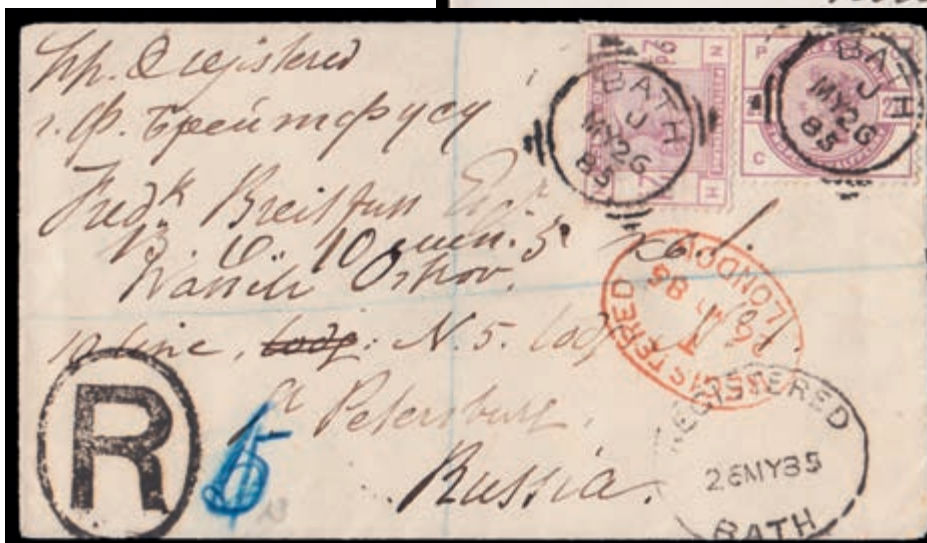 Registered
г. Ф. Брейтфусу
Fredk Breitfuss Esq.
В. О. 10 лин. 5
Wassili Ostrov.
10 line, lodg: N. 5. lodg N 81.
St Petersburg.
Russia.
BATH
U
MY 26
85
BATH
U
MY 26
85
REGISTERED
LONDON
REGISTERED
26MY85
BATH
R